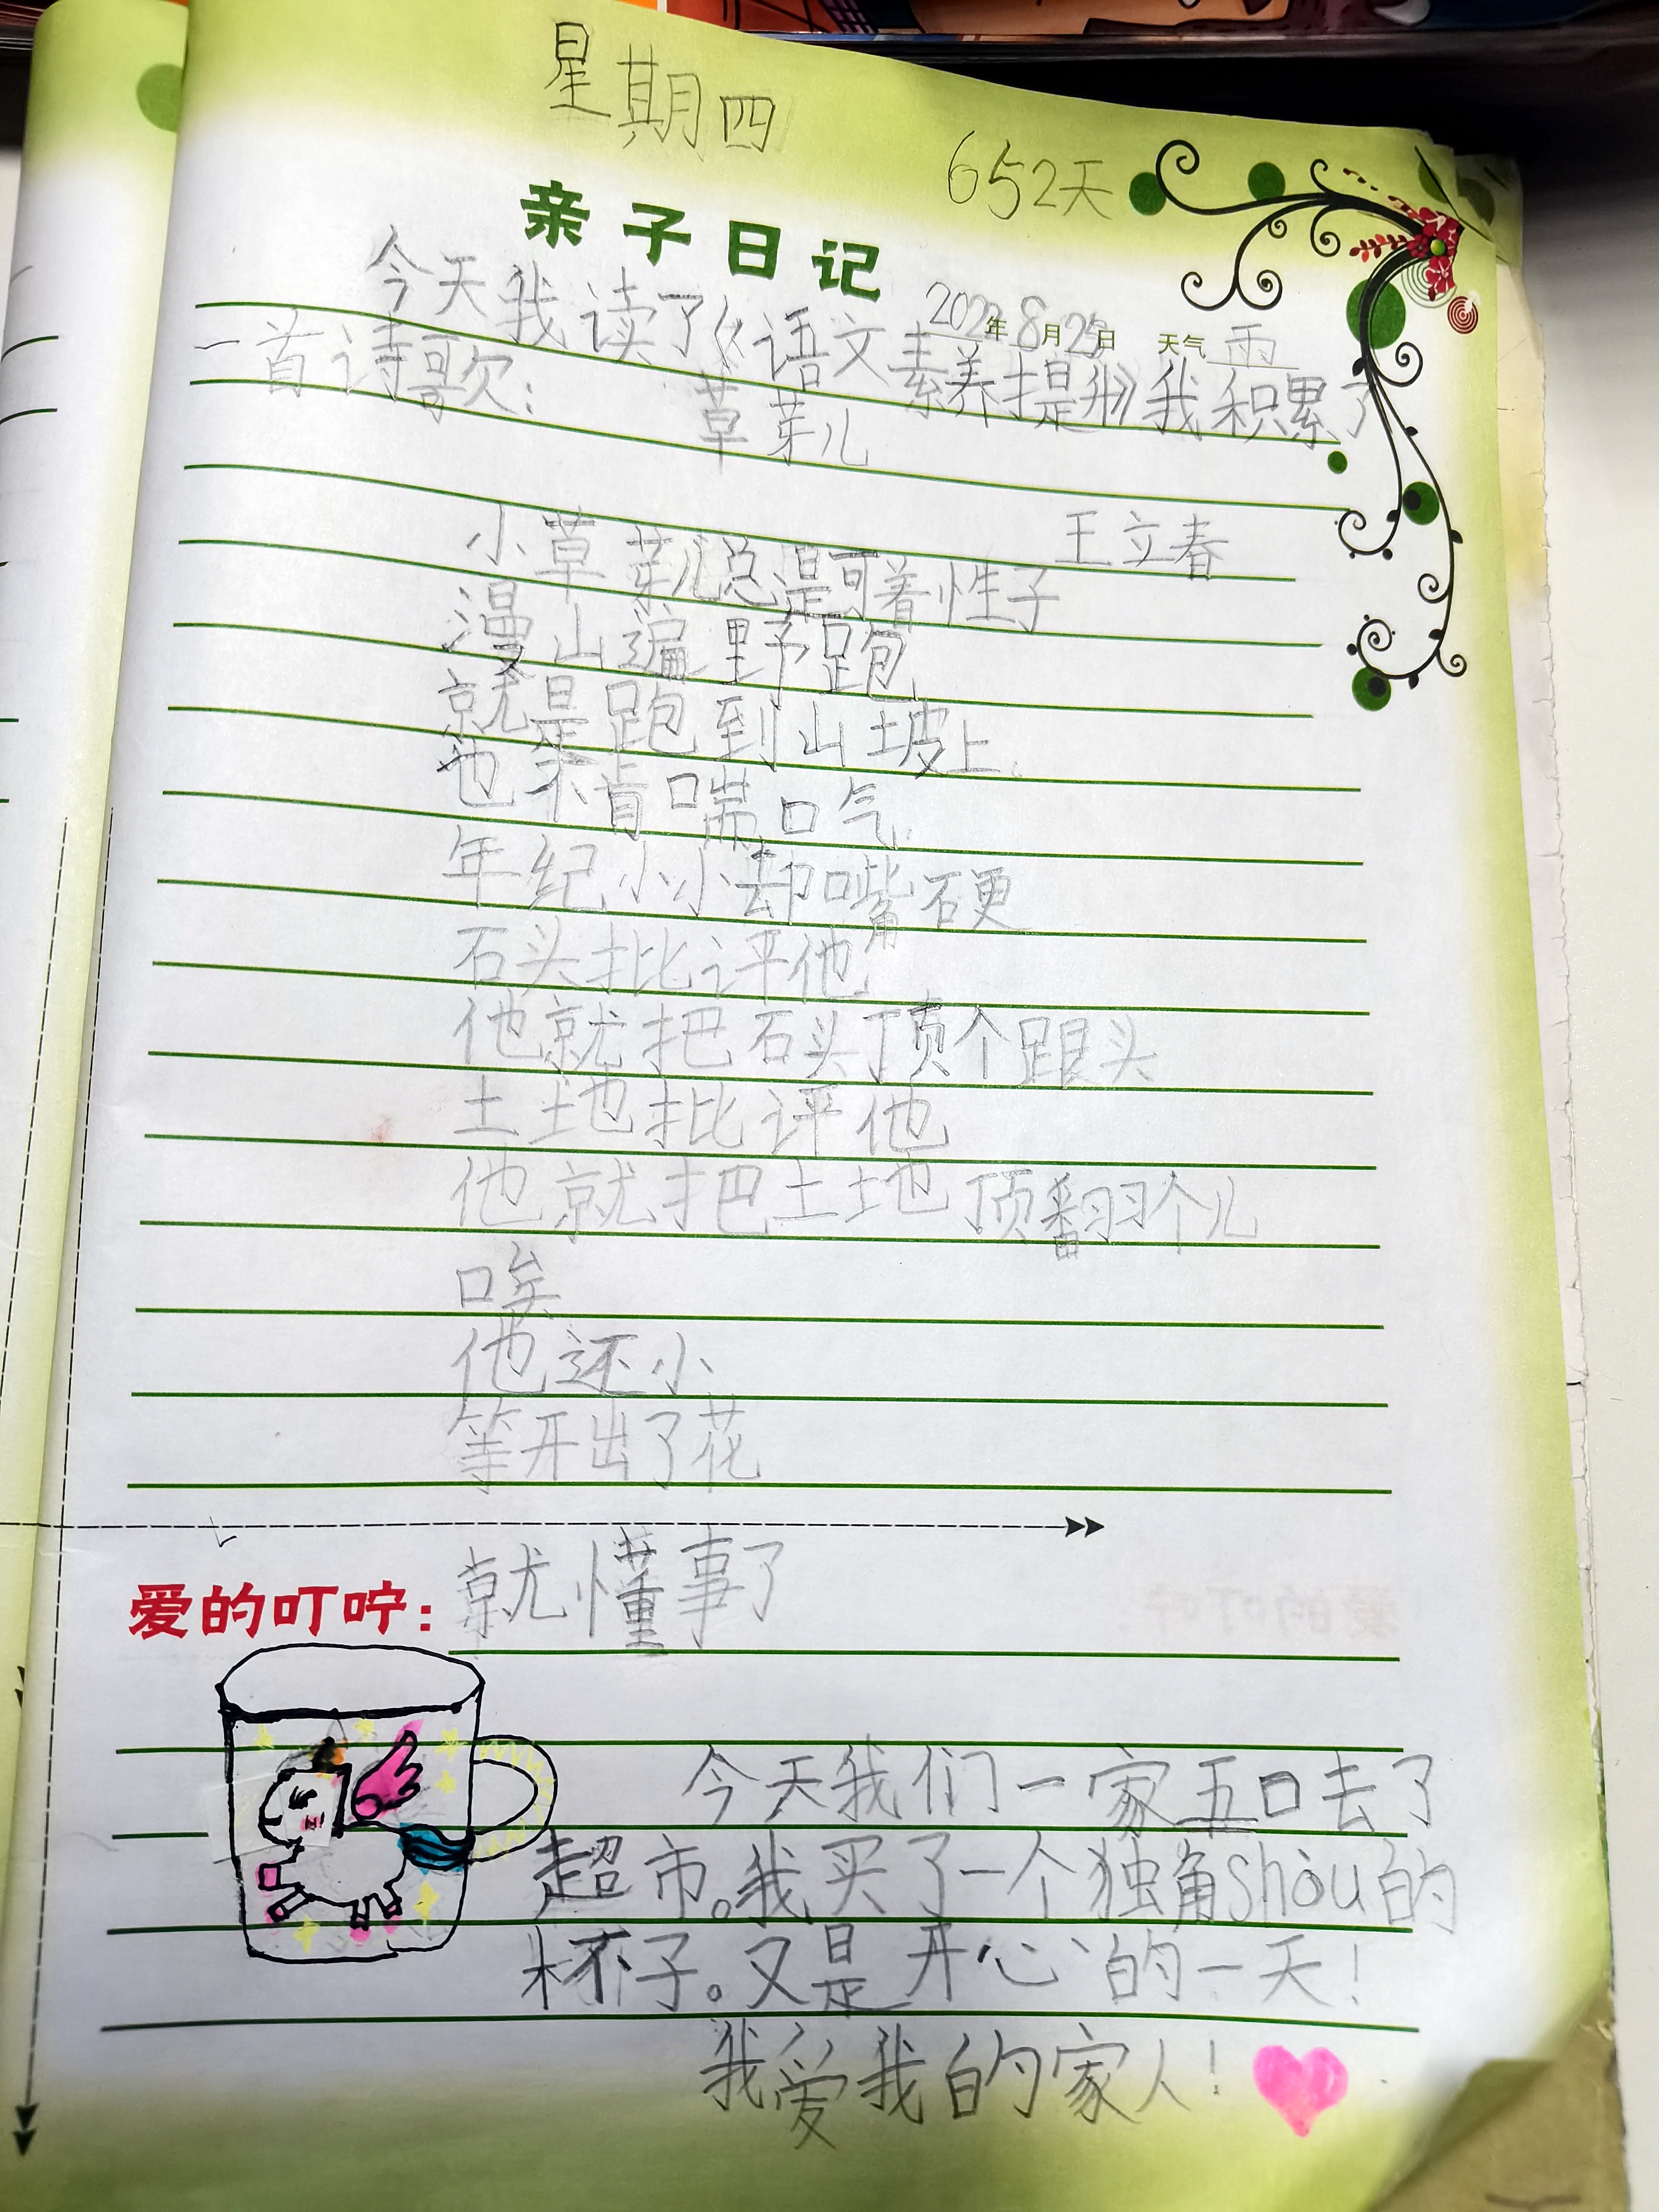 星期四
652天
亲子日记
2022年8月25日 天气 雨
今天我读了《语文素养提升》我积累了
一首诗歌：
草芽儿
王立春
小草芽儿总是可着性子
漫山遍野跑
就是跑到山坡上
也不肯喘口气
年纪小小却嘴硬
石头批评他
他就把石头顶个跟头
土地批评他
他就把土地顶翻个儿
唉
他还小
等开出了花
就懂事了
爱的叮咛：
今天我们一家五口去了
超市。我买了一个独角shòu的
杯子。又是开心的一天！
我爱我的家人！